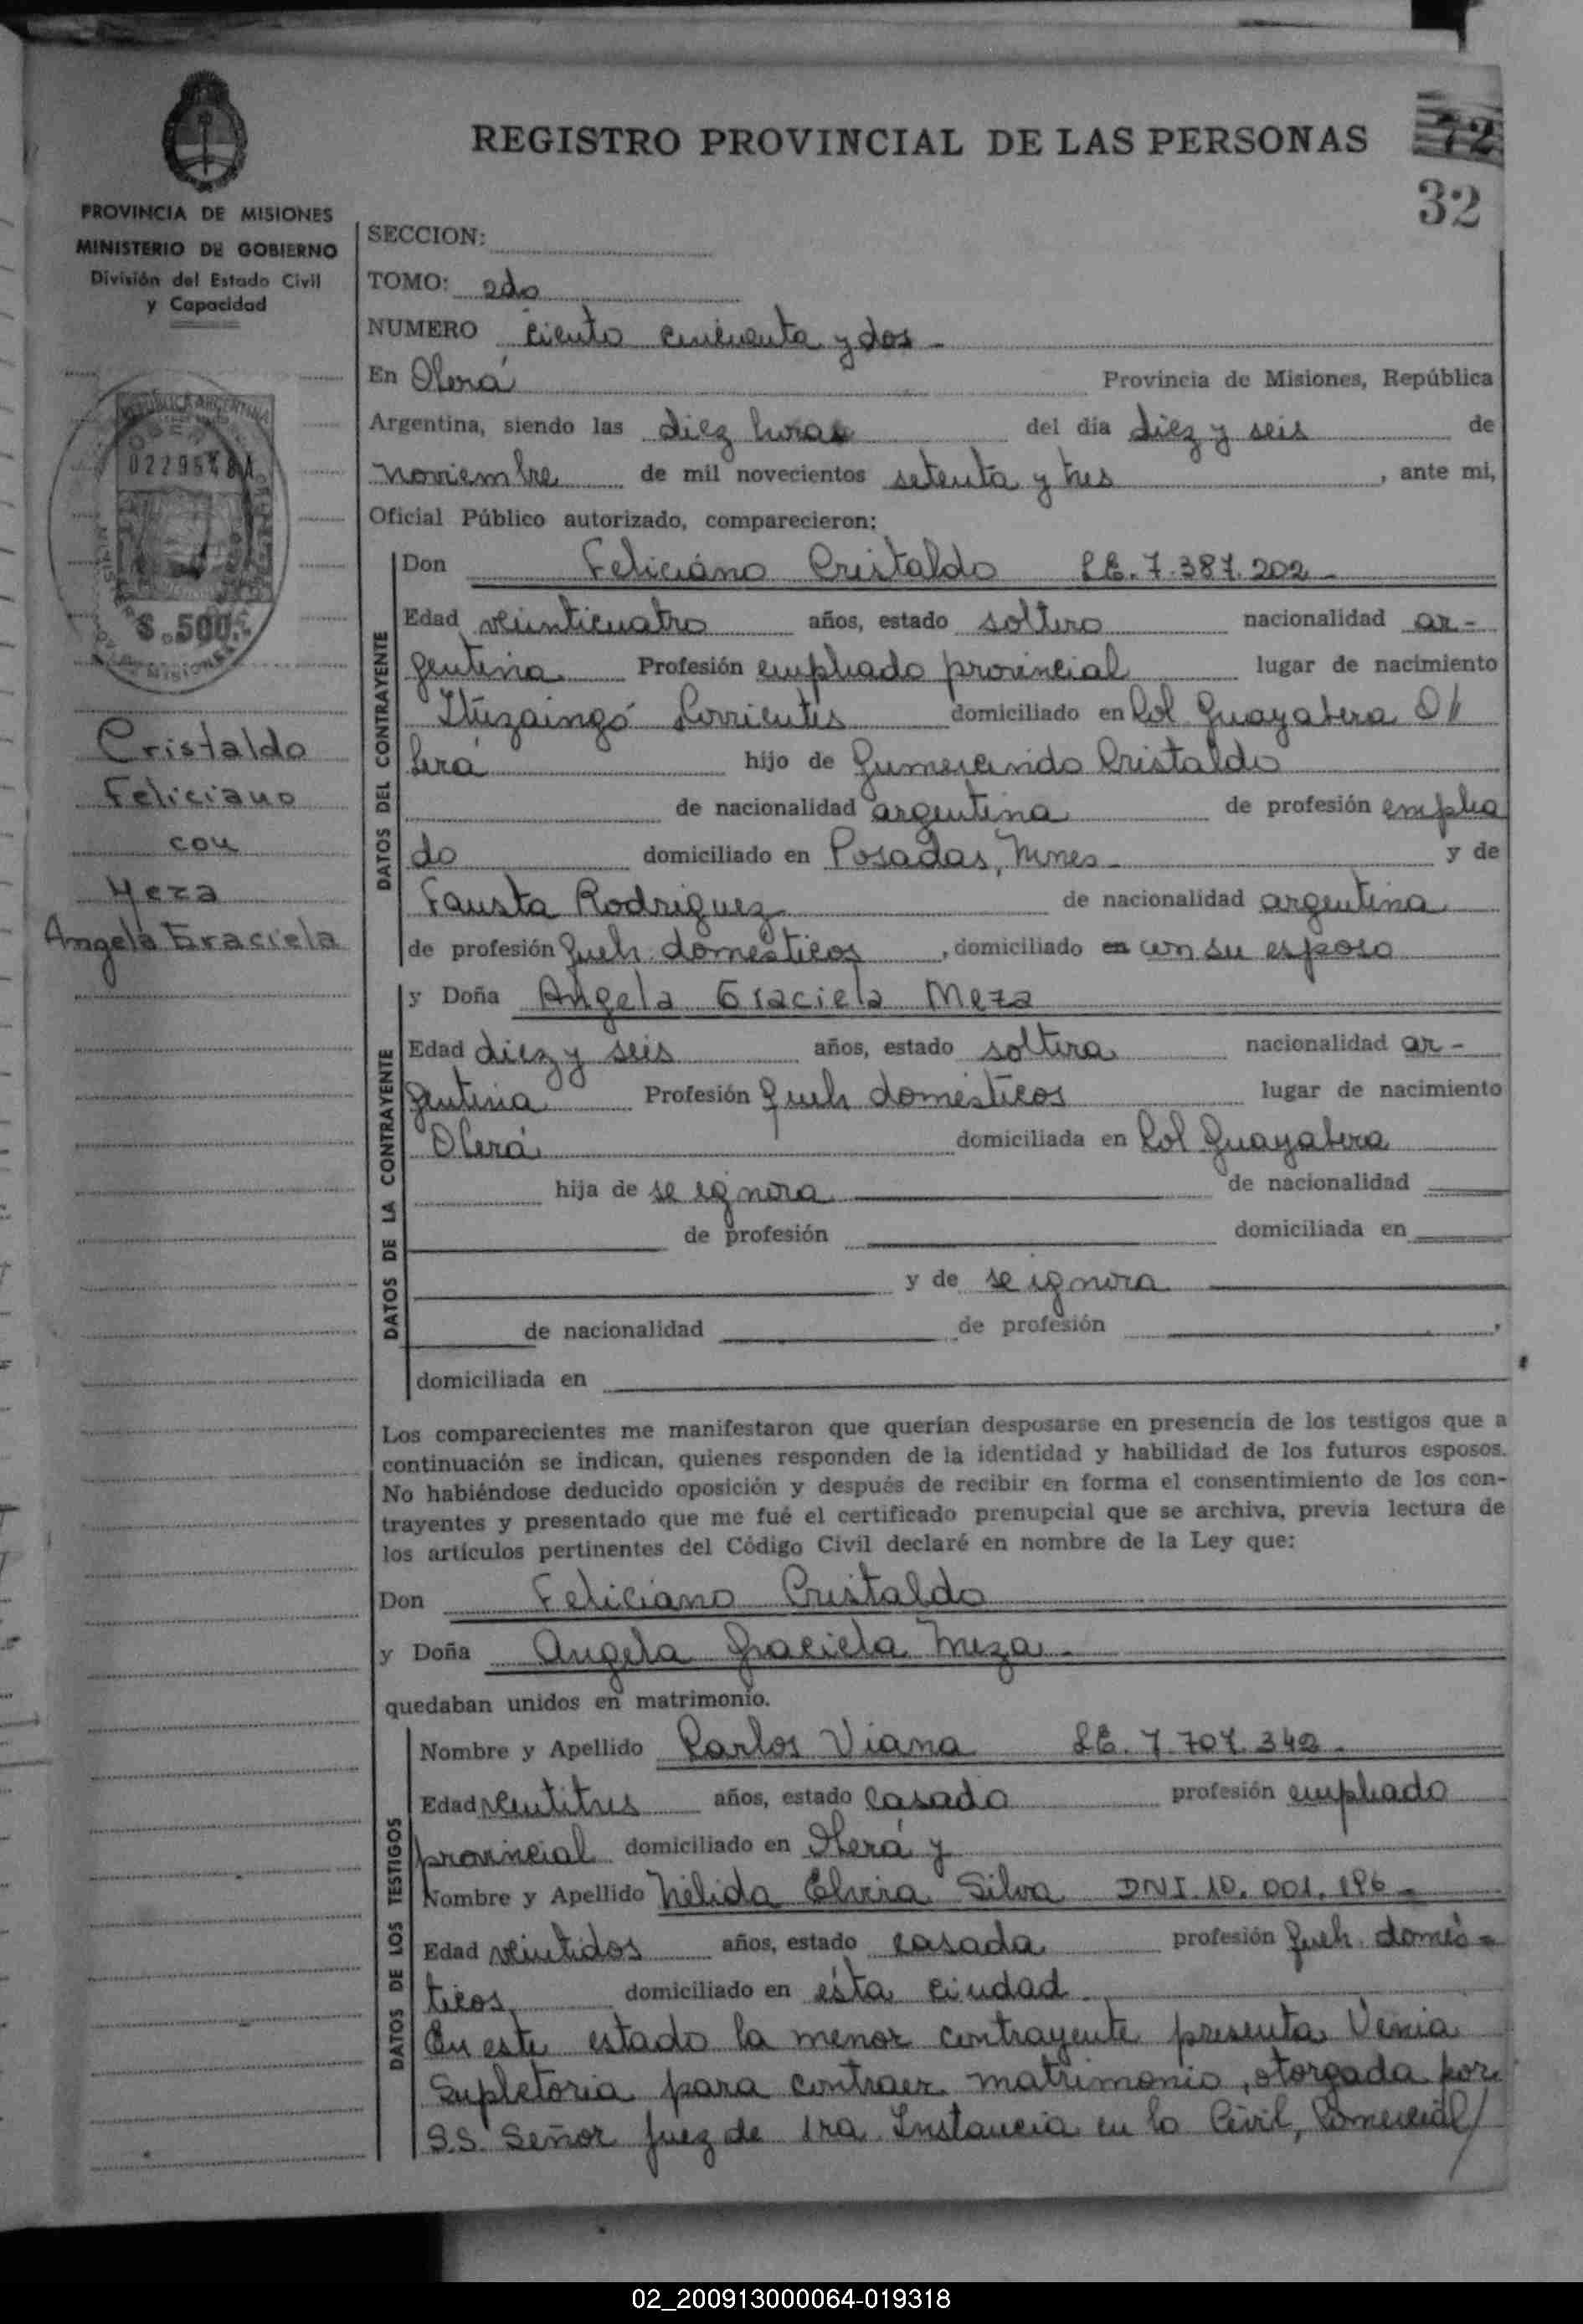 REGISTRO PROVINCIAL DE LAS PERSONAS
72
32
PROVINCIA DE MISIONES
MINISTERIO DE GOBIERNO
División del Estado Civil
y Capacidad
SECCION:
TOMO: 2do
NUMERO ciento cincuenta y dos -
En Oberá Provincia de Misiones, República
Argentina, siendo las diez horas del día diez y seis de
noviembre de mil novecientos setenta y tres, ante mi,
Oficial Público autorizado, comparecieron:
REPUBLICA ARGENTINA
$.500.
Cristaldo
Feliciano
con
Meza
Angela Graciela
DATOS DEL CONTRAYENTE
Don Feliciano Cristaldo LE. 7.387.202 -
Edad veinticuatro años, estado soltero nacionalidad ar-
gentina Profesión empleado provincial lugar de nacimiento
Ituzaingó Corrientes domiciliado en Col Guayabera O//
berá hijo de Gumercindo Cristaldo
de nacionalidad argentina de profesión emplea
do domiciliado en Posadas, Mnes - y de
Fausta Rodriguez de nacionalidad argentina
de profesión queh. domésticos, domiciliado en con su esposo
DATOS DE LA CONTRAYENTE
y Doña Angela Graciela Meza
Edad diez y seis años, estado soltera nacionalidad ar-
gentina Profesión queh domésticos lugar de nacimiento
Oberá domiciliada en Col Guayabera
hija de se ignora de nacionalidad
de profesión domiciliada en
y de se ignora
de nacionalidad de profesión ,
domiciliada en
Los comparecientes me manifestaron que querían desposarse en presencia de los testigos que a
continuación se indican, quienes responden de la identidad y habilidad de los futuros esposos.
No habiéndose deducido oposición y después de recibir en forma el consentimiento de los con-
trayentes y presentado que me fué el certificado prenupcial que se archiva, previa lectura de
los artículos pertinentes del Código Civil declaré en nombre de la Ley que:
Don Feliciano Cristaldo
y Doña Angela Graciela Meza -
quedaban unidos en matrimonio.
DATOS DE LOS TESTIGOS
Nombre y Apellido Carlos Viana LE. 7.707.342 -
Edad veintitres años, estado casado profesión empleado
provincial domiciliado en Oberá y
Nombre y Apellido Nélida Elvira Silva DNI 10.001.196 -
Edad veintidos años, estado casada profesión queh. domés-
ticos domiciliado en ésta ciudad
En este estado la menor contrayente presenta Venia
Supletoria para contraer matrimonio, otorgada por
S.S. Señor Juez de 1ra Instancia en lo Civil, Comercial/
02_200913000064-019318